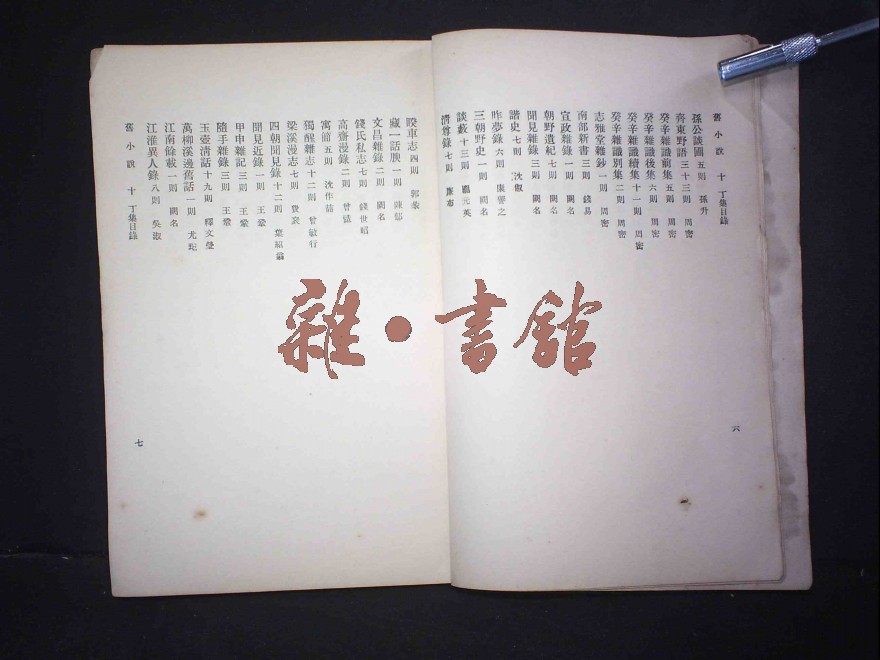 舊小說 十 丁集目錄
孫公談圃 五則 孫升
齊東野語 三十三則 周密
癸辛雜識前集 五則 周密
癸辛雜識後集 六則 周密
癸辛雜識續集 十一則 周密
癸辛雜識別集 二則 周密
志雅堂雜鈔 一則 周密
南部新書 三則 錢易
宣政雜錄 一則 闕名
朝野遺紀 七則 闕名
聞見雜錄 三則 闕名
諧史 七則 沈俶
昨夢錄 六則 康譽之
三朝野史 一則 闕名
談藪 十三則 龐元英
清尊錄 七則 廉布
六
睽車志 四則 郭彖
藏一話腴 一則 陳郁
文昌雜錄 二則 闕名
錢氏私志 七則 錢世昭
高齋漫錄 二則 曾慥
寓簡 五則 沈作喆
獨醒雜志 十二則 曾敏行
梁溪漫志 七則 費袞
四朝聞見錄 十二則 葉紹翁
聞見近錄 一則 王鞏
甲申雜記 三則 王鞏
隨手雜錄 三則 王鞏
玉壺清話 十九則 釋文瑩
萬柳溪邊舊話 一則 尤玘
江南餘載 一則 闕名
江淮異人錄 八則 吳淑
舊小說 十 丁集目錄
七
雜·書館